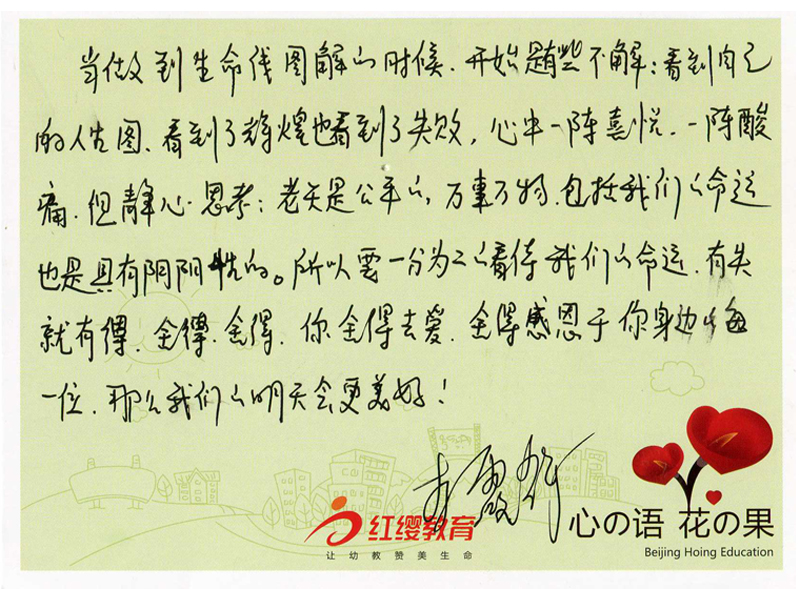 当做到生命线图解的时候、开始是有些不解：看到自己
的人生图、看到了辉煌也看到了失败，心中一阵喜悦、一阵酸
痛、但静心思考：老天是公平的，万事万物、包括我们的命运
也是具有阴阳性的。所以要一分为二的看待我们的命运、有失
就有得、舍得、舍得、你舍得去爱、舍得感恩于你身边的每
一位、那么我们的明天会更美好！
红缨教育
让幼教赞美生命
心の语 花の果
Beijing Hoing Education